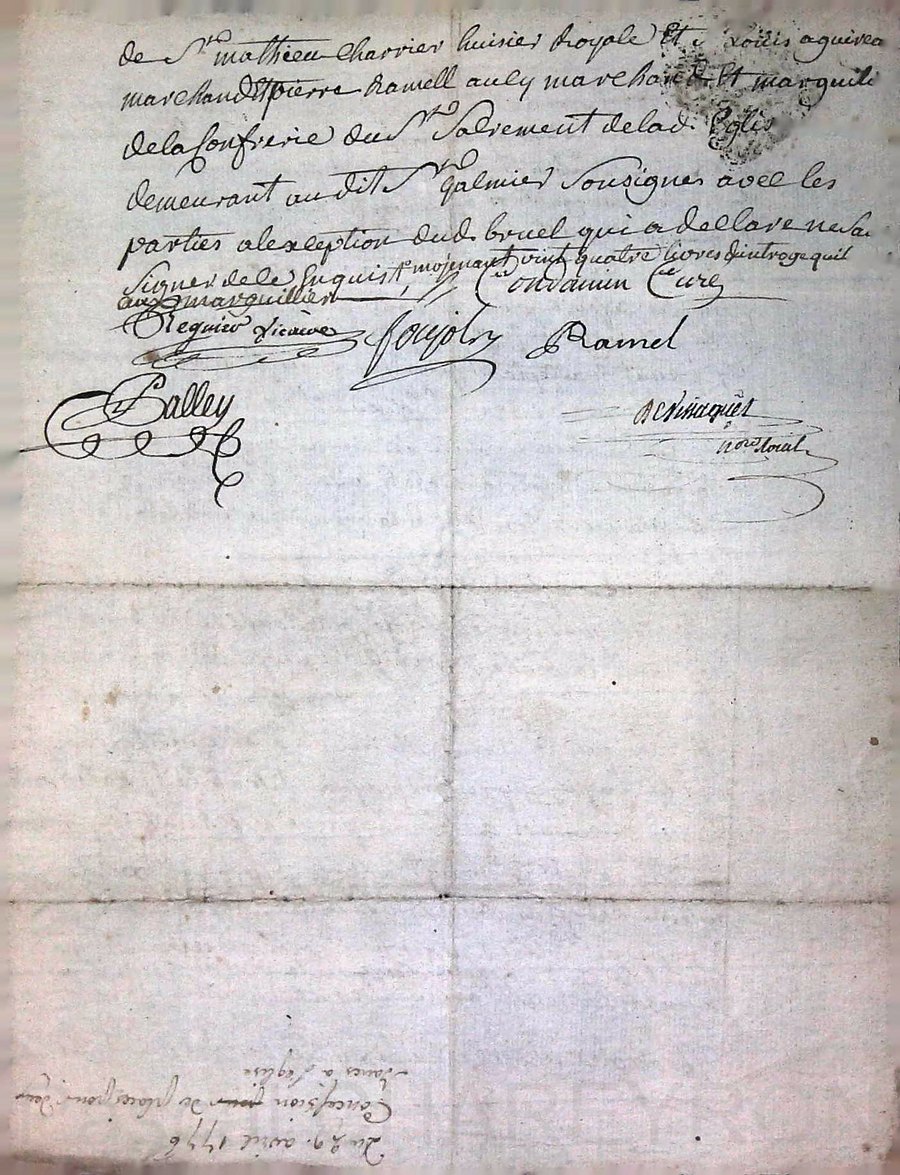 de Sr mathieu Charrier huisier Royale Et Louis
marchand Et pierre Ramell aucy marchand Et marguili
de la Confrerie du St Sacrement de lad Eglis
demeurant au dit St galmier Sousignes avec les
parties a lexception dud bruel qui a declare ne
Signer de ce Enquis moyenant vint quatre livres dintroge quil
aux marguilliers
Condamin Cure
Regnier vicaire
Ramel
Balley
nore Roial
du 29 avril 1776
Concession de places pour deux
bancs a l'eglise